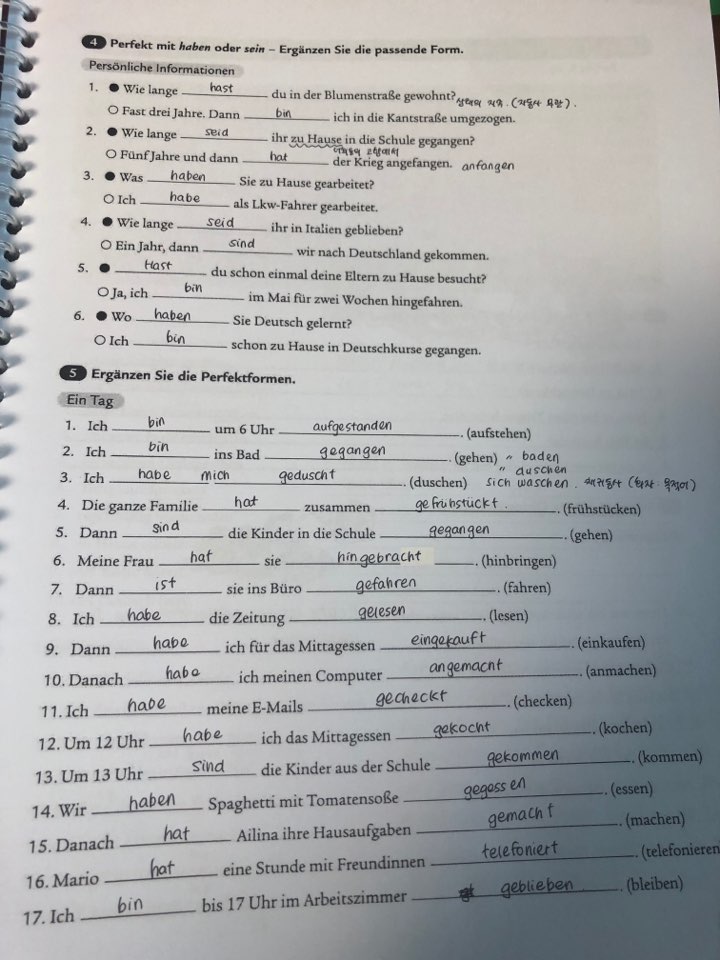 4 Perfekt mit haben oder sein – Ergänzen Sie die passende Form.
Persönliche Informationen
1. ● Wie lange hast du in der Blumenstraße gewohnt? 상태의 지속. (자동사 무관).
○ Fast drei Jahre. Dann bin ich in die Kantstraße umgezogen.
2. ● Wie lange seid ihr zu Hause in die Schule gegangen?
○ Fünf Jahre und dann hat der Krieg angefangen. anfangen
3. ● Was haben Sie zu Hause gearbeitet?
○ Ich habe als Lkw-Fahrer gearbeitet.
4. ● Wie lange seid ihr in Italien geblieben?
○ Ein Jahr, dann sind wir nach Deutschland gekommen.
5. ● Hast du schon einmal deine Eltern zu Hause besucht?
○ Ja, ich bin im Mai für zwei Wochen hingefahren.
6. ● Wo haben Sie Deutsch gelernt?
○ Ich bin schon zu Hause in Deutschkurse gegangen.
5 Ergänzen Sie die Perfektformen.
Ein Tag
1. Ich bin um 6 Uhr aufgestanden. (aufstehen)
2. Ich bin ins Bad gegangen. (gehen) " baden
" duschen
3. Ich habe mich geduscht. (duschen) sich waschen. 재귀동사
4. Die ganze Familie hat zusammen gefrühstückt. (frühstücken)
5. Dann sind die Kinder in die Schule gegangen. (gehen)
6. Meine Frau hat sie hingebracht. (hinbringen)
7. Dann ist sie ins Büro gefahren. (fahren)
8. Ich habe die Zeitung gelesen. (lesen)
9. Dann habe ich für das Mittagessen eingekauft. (einkaufen)
10. Danach habe ich meinen Computer angemacht. (anmachen)
11. Ich habe meine E-Mails gecheckt. (checken)
12. Um 12 Uhr habe ich das Mittagessen gekocht. (kochen)
13. Um 13 Uhr sind die Kinder aus der Schule gekommen. (kommen)
14. Wir haben Spaghetti mit Tomatensoße gegessen. (essen)
15. Danach hat Ailina ihre Hausaufgaben gemacht. (machen)
16. Mario hat eine Stunde mit Freundinnen telefoniert. (telefonieren
17. Ich bin bis 17 Uhr im Arbeitszimmer geblieben. (bleiben)